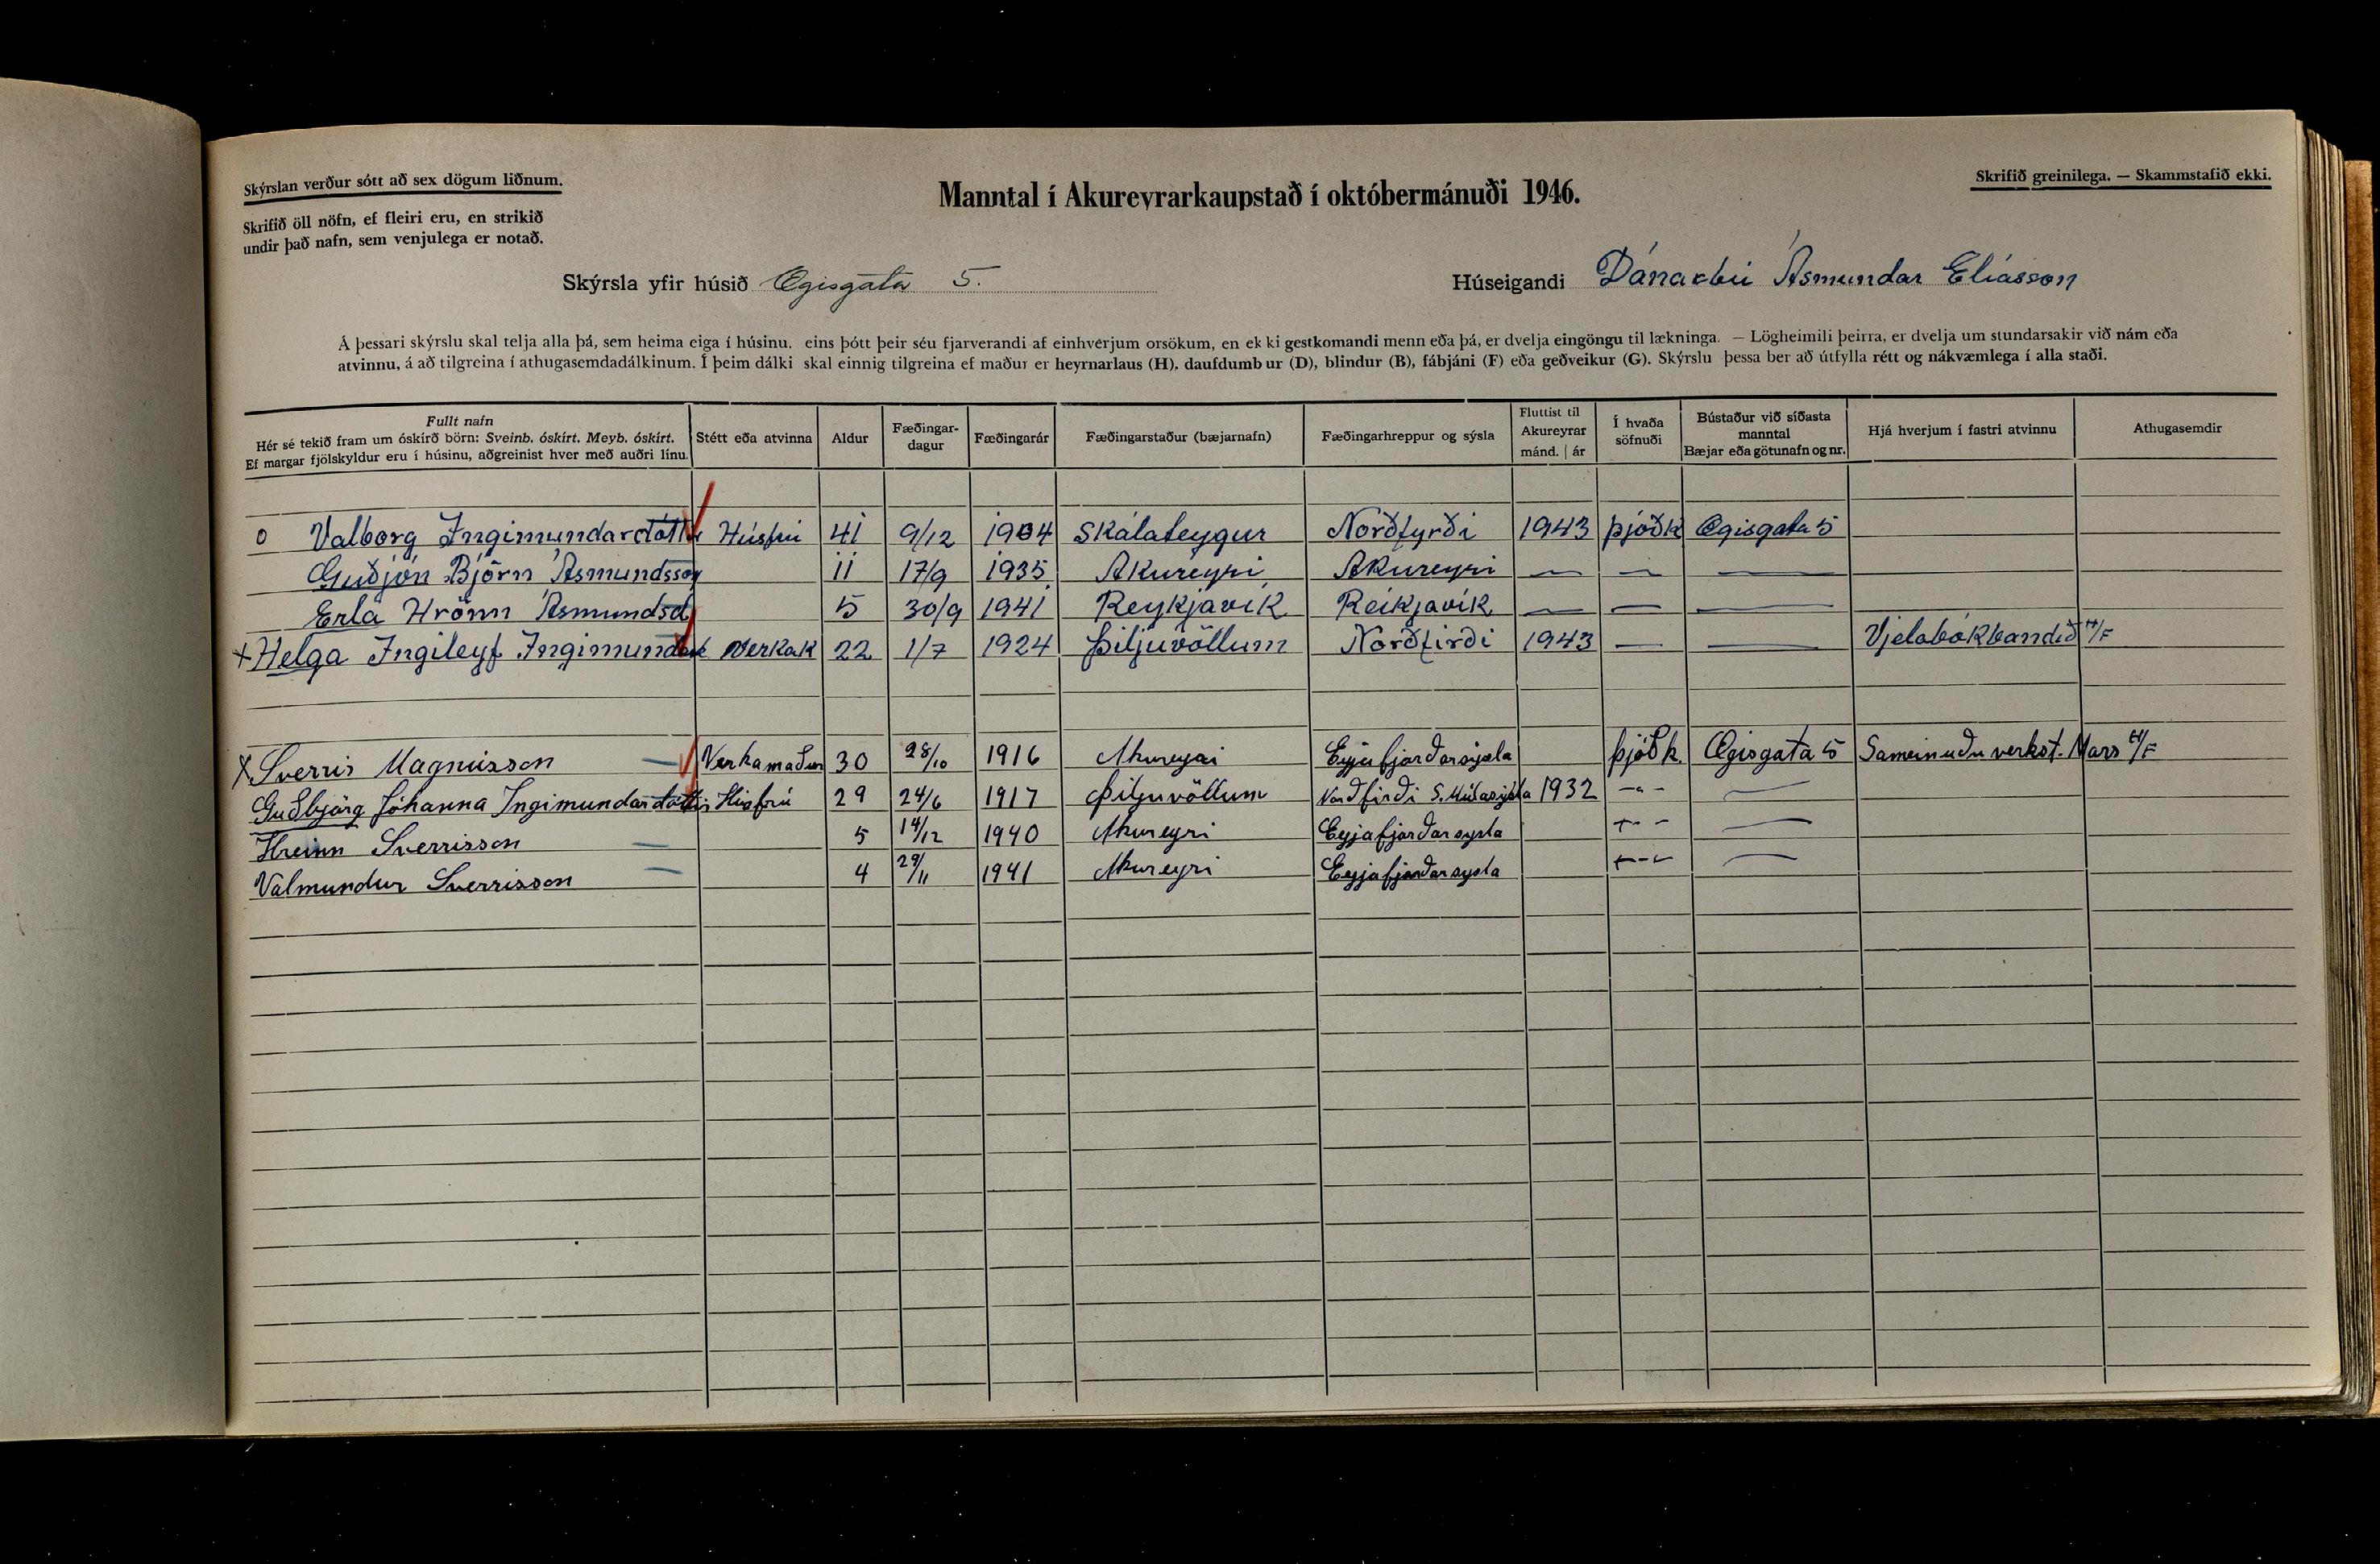 Skýrslan verður sótt að sex dögum liðnum.
Skrifið öll nöfn, ef fleiri eru, en strikið
undir það nafn, sem venjulega er notað.
Manntal í Akureyrarkaupstað í októbermánuði 1946.
Skrifið greinilega. — Skammstafið ekki.
Skýrsla yfir húsið Ægisgata 5.
Húseigandi Dánarbú Ásmundar Elíasson
Á þessari skýrslu skal telja alla þá, sem heima eiga í húsinu, eins þótt þeir séu fjarverandi af einhverjum orsökum, en ekki gestkomandi menn eða þá, er dvelja eingöngu til lækninga. — Lögheimili þeirra, er dvelja um stundarsakir við nám eða
atvinnu, á að tilgreina í athugasemdadálkinum. Í þeim dálki skal einnig tilgreina ef maður er heyrnarlaus (H), daufdumbur (D), blindur (B), fábjáni (F) eða geðveikur (G). Skýrslu þessa ber að útfylla rétt og nákvæmlega í alla staði.
Fullt nafn
Hér sé tekið fram um óskírð börn: Sveinb. óskírt. Meyb. óskírt.
Ef margar fjölskyldur eru í húsinu, aðgreinist hver með auðri línu.
Stétt eða atvinna
Aldur
Fæðingar-
dagur
Fæðingarár
Fæðingarstaður (bæjarnafn)
Fæðingarhreppur og sýsla
Fluttist til
Akureyrar
mánd. | ár
Í hvaða
söfnuði
Bústaður við síðasta
manntal
Bæjar eða götunafn og nr.
Hjá hverjum í fastri atvinnu
Athugasemdir
o Valborg Ingimundardóttir Húsfrú 41 9/12 1904 Skálateygur Norðfyrði 1943 þjóðk Ægisgata 5
Guðjón Björn Ásmundsson 11 17/9 1935 Akureyri Akureyri — — —
Erla Hrönn Ásmundsd 5 30/9 1941 Reykjavík Reikjavík — — —
+ Helga Ingileyf Ingimundard Verkak 22 1/7 1924 Þiljuvöllum Norðfirði 1943 — — Vjelabókbandið H/F
X Sverrir Magnússon — Verkamaður 30 28/10 1916 Akureyri Eyjafjarðarsýsla þjóðk. Ægisgata 5 Sameinuðu verkst. Mars H/F
Guðbjörg Jóhanna Ingimundardóttir Húsfrú 29 24/6 1917 Þiljuvöllum Norðfirði S. Múlasýsla 1932 -"- —
Hreinn Sverrisson — 5 14/12 1940 Akureyri Eyjafjarðarsysla -"- —
Valmundur Sverrisson — 4 29/11 1941 Akureyri Eyjafjarðarsysla -"- —